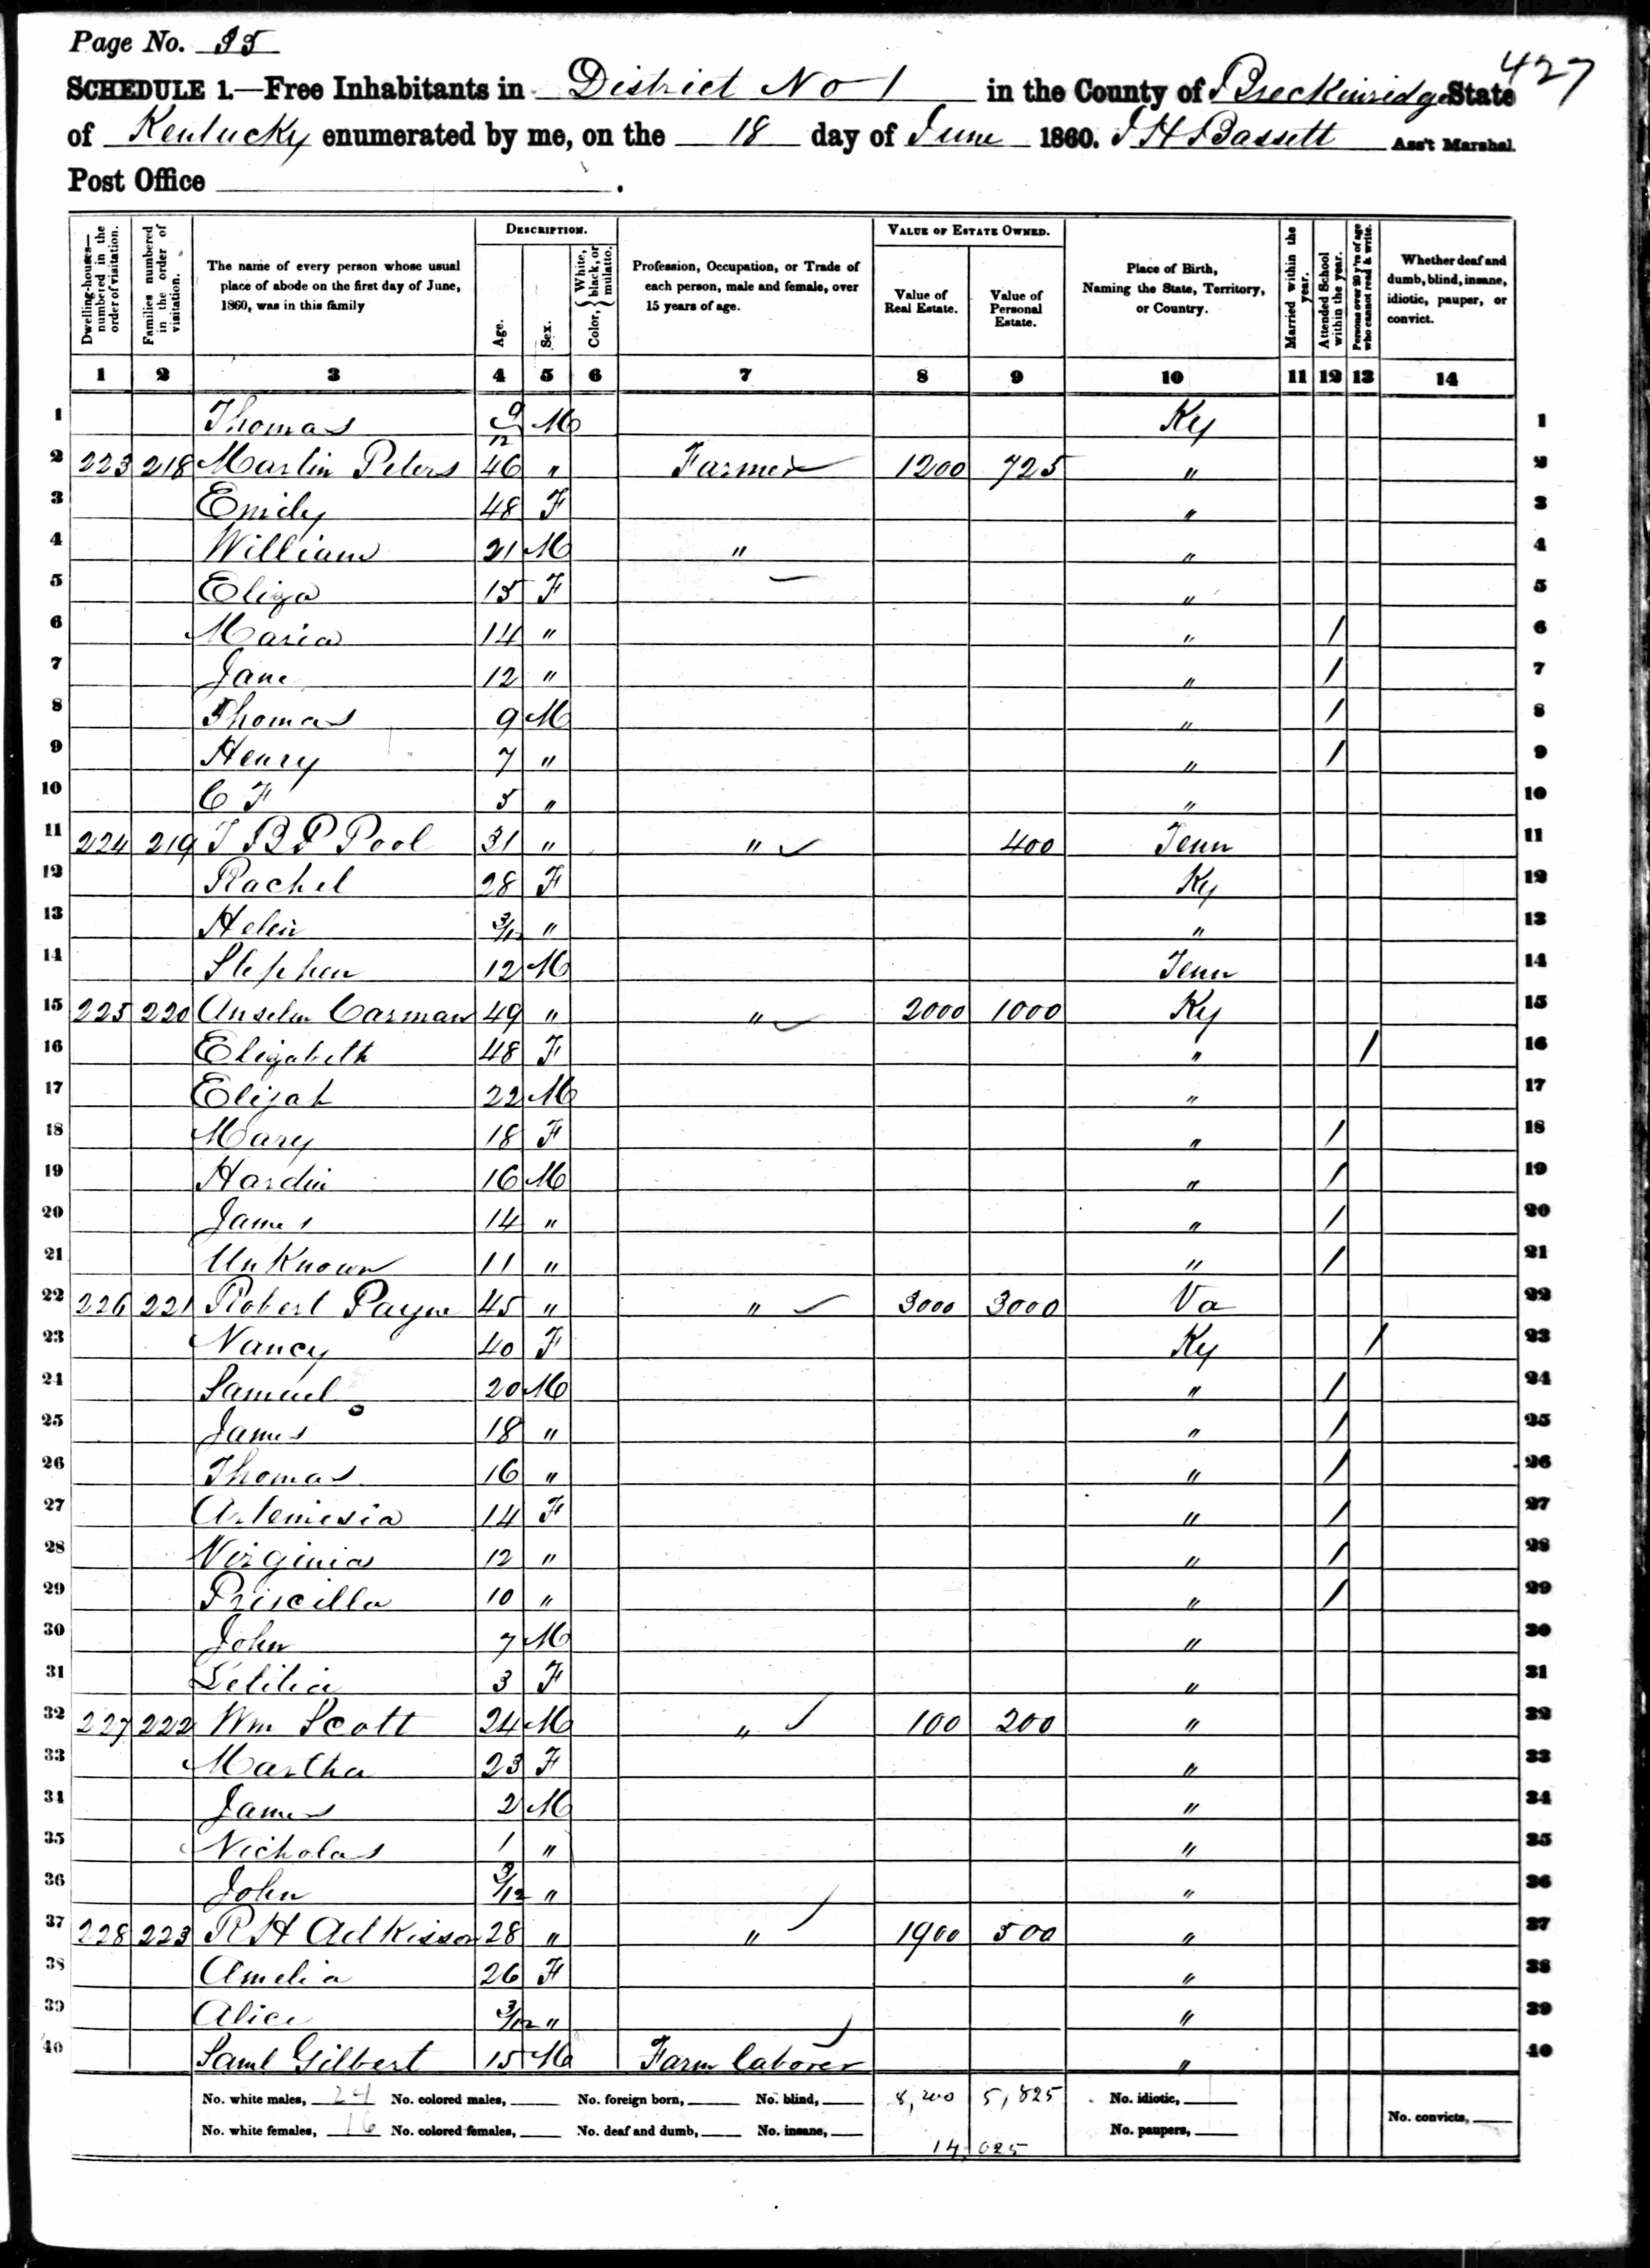 Page No. 35
427
SCHEDULE 1.—Free Inhabitants in District No 1 in the County of Breckinridge State
of Kentucky enumerated by me, on the 18 day of June 1860. J H Bassett Ass't Marshal.
Post Office .
Dwelling-houses—numbered in the order of visitation.
Families numbered in the order of visitation.
The name of every person whose usual place of abode on the first day of June, 1860, was in this family
DESCRIPTION.
Age.
Sex.
Color, { White, black, or mulatto.
Profession, Occupation, or Trade of each person, male and female, over 15 years of age.
VALUE OF ESTATE OWNED.
Value of Real Estate.
Value of Personal Estate.
Place of Birth, Naming the State, Territory, or Country.
Married within the year.
Attended School within the year.
Persons over 20 y'rs of age who cannot read & write.
Whether deaf and dumb, blind, insane, idiotic, pauper, or convict.
1 2 3 4 5 6 7 8 9 10 11 12 13 14
1 Thomas 9/12 M Ky 1
2 223 218 Martin Peters 46 " Farmer 1200 725 " 2
3 Emily 48 F " 3
4 William 21 M " " 4
5 Eliza 15 F " 5
6 Maria 14 " " / 6
7 Jane 12 " " / 7
8 Thomas 9 M " / 8
9 Henry 7 " " / 9
10 C F 5 " " 10
11 224 219 J B P Pool 31 " " 400 Tenn 11
12 Rachel 28 F Ky 12
13 Helen 3/12 " " 13
14 Stephen 12 M Tenn 14
15 225 220 Anselm Carman 49 " " 2000 1000 Ky 15
16 Elizabeth 48 F " / 16
17 Elijah 22 M " 17
18 Mary 18 F " / 18
19 Hardin 16 M " / 19
20 James 14 " " / 20
21 UnKnown 11 " " / 21
22 226 221 Robert Payne 45 " " 3000 3000 Va 22
23 Nancy 40 F Ky / 23
24 Samuel 20 M " / 24
25 James 18 " " / 25
26 Thomas 16 " " / 26
27 Artemisia 14 F " / 27
28 Virginia 12 " " / 28
29 Priscilla 10 " " / 29
30 John 7 M " 30
31 Letitia 3 F " 31
32 227 222 Wm Scott 24 M " 100 200 " 32
33 Martha 23 F " 33
34 James 2 M " 34
35 Nicholas 1 " " 35
36 John 3/12 " " 36
37 228 223 R H Adkisson 28 " " 1900 500 " 37
38 Amelia 26 F " 38
39 Alice 3/12 " " 39
40 Saml Gilbert 15 M Farm laborer " 40
No. white males, 24 No. colored males, No. foreign born, No. blind, 8,200 5,825 No. idiotic,
No. white females, 16 No. colored females, No. deaf and dumb, No. insane, No. paupers, No. convicts,
14,025